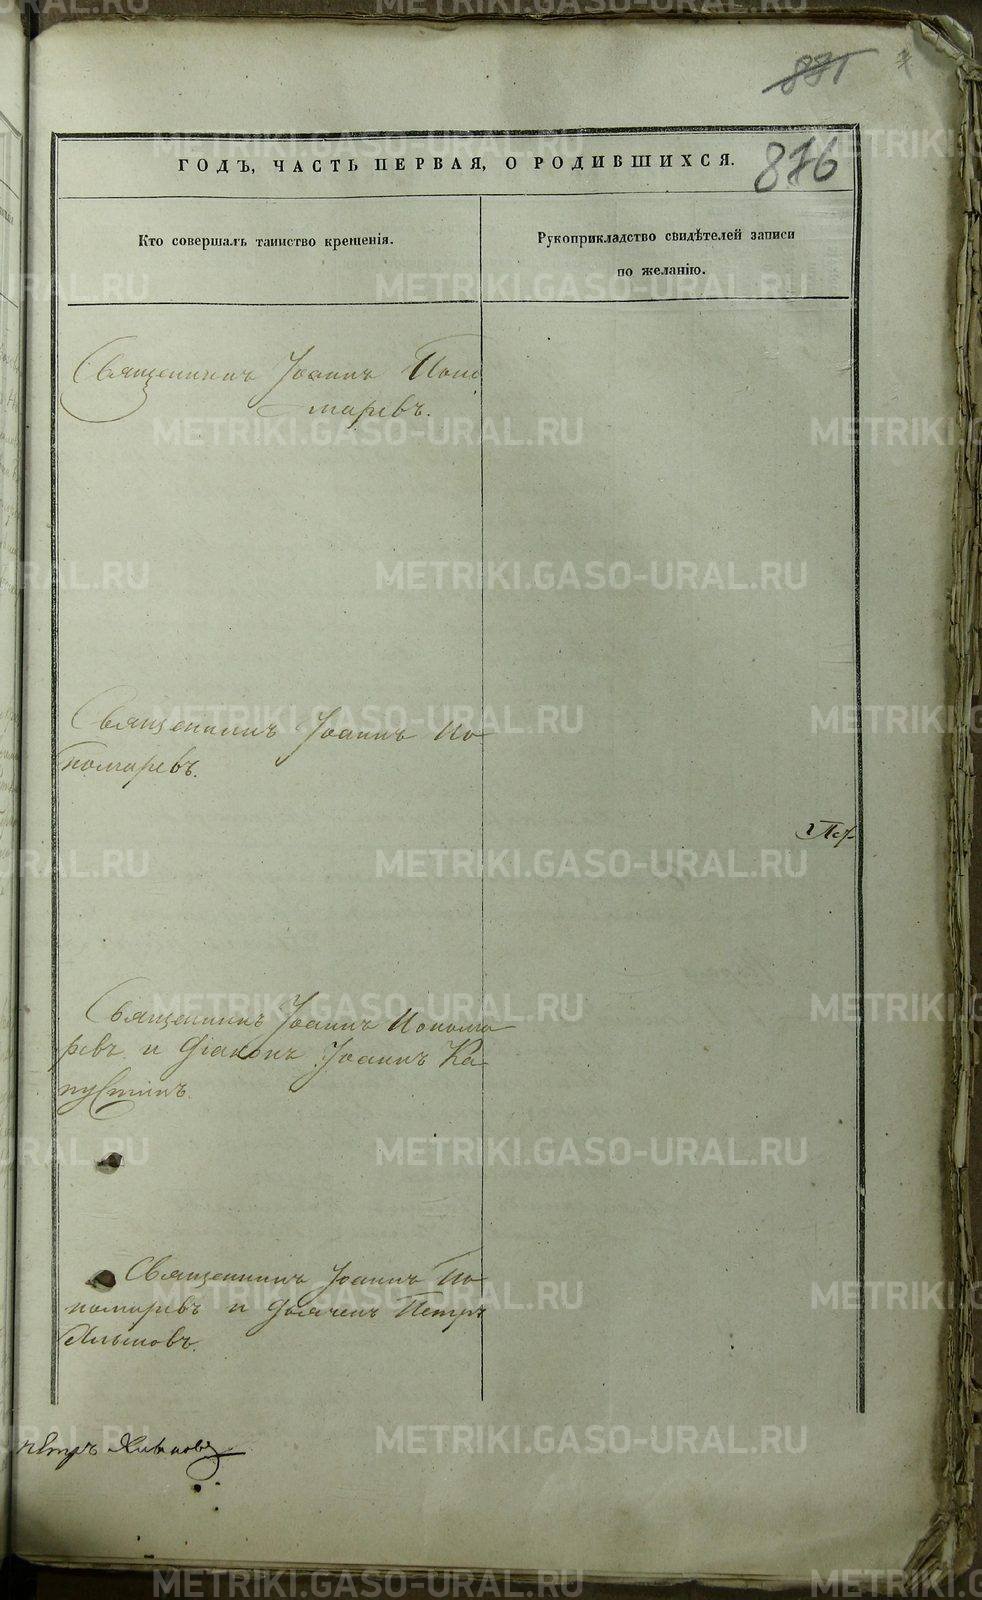 881
876
ГОДЪ, ЧАСТЬ ПЕРВАЯ, О РОДИВШИХСЯ.
Кто совершалъ таинство крещенія.
Рукоприкладство свидѣтелей записи
по желанію.
Священникъ Іоаннъ Поно
маревъ.
Священникъ Іоаннъ По
номаревъ.
Священникъ Іоаннъ Понома
ревъ и Діаконъ Іоаннъ Ка
пустинъ.
Священникъ Іоаннъ По
номаревъ и Дьячекъ Петръ
Петръ
METRIKI.GASO-URAL.RU